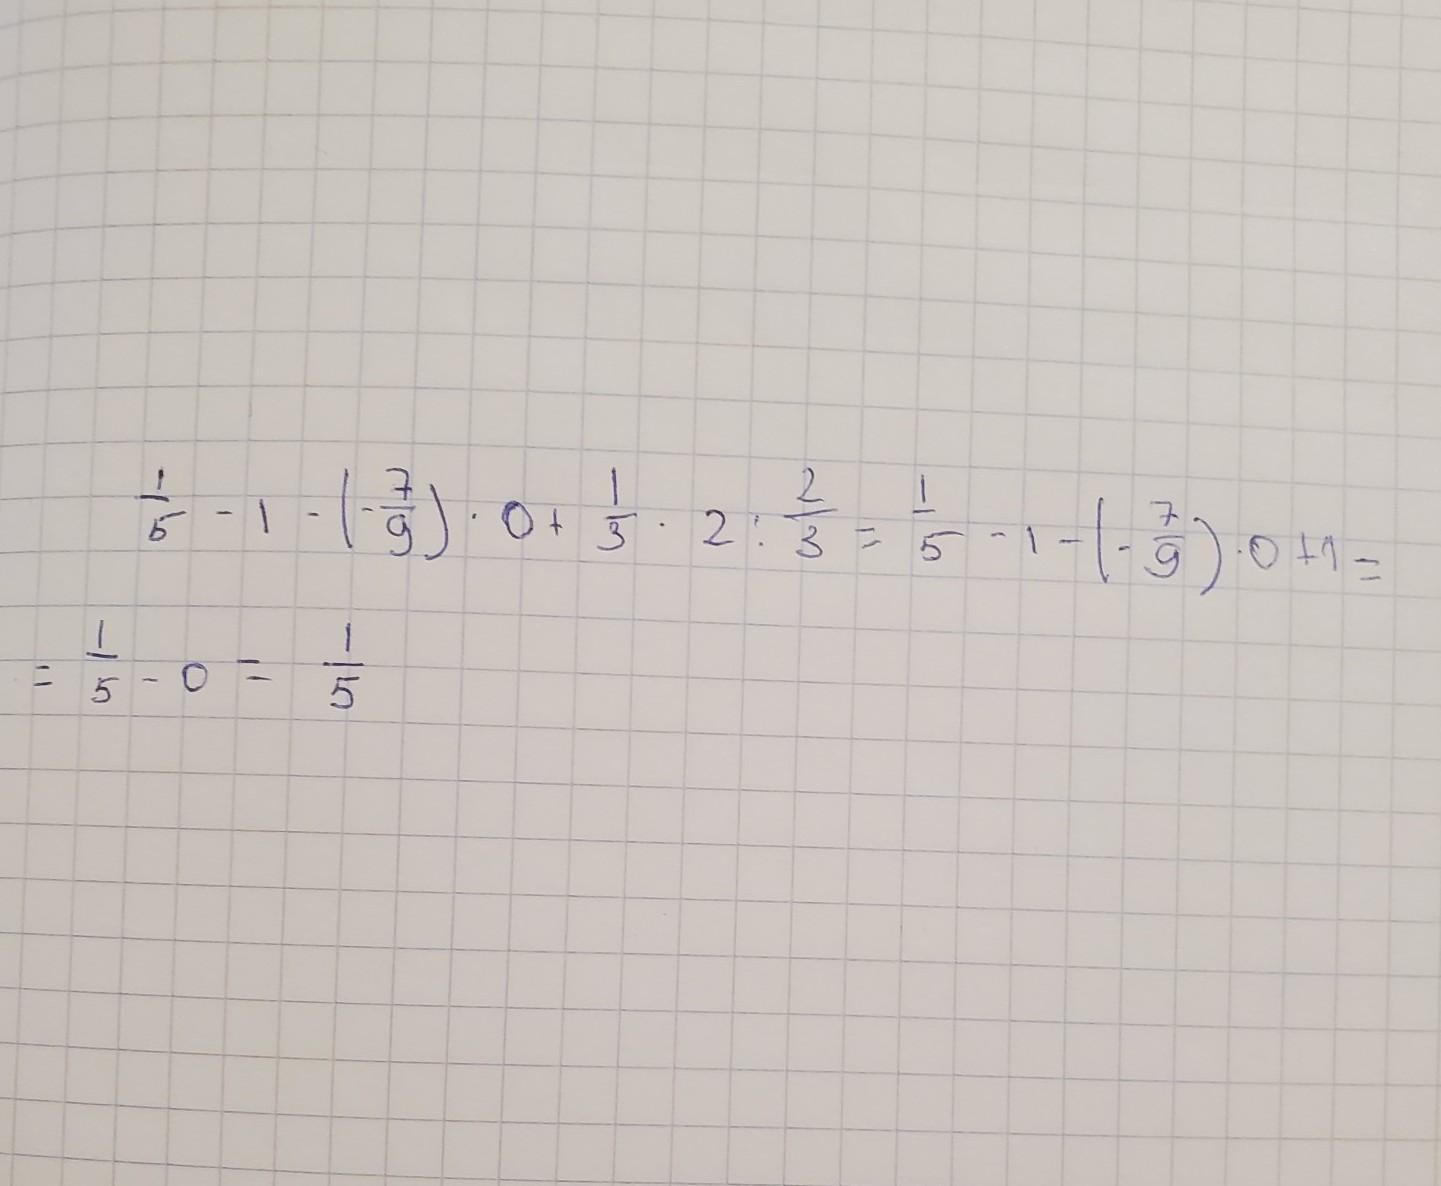 1/5 - 1 - (-7/9) · 0 + 1/3 · 2 : 2/3 = 1/5 - 1 - (-7/9) · 0 + 1 =
= 1/5 - 0 = 1/5